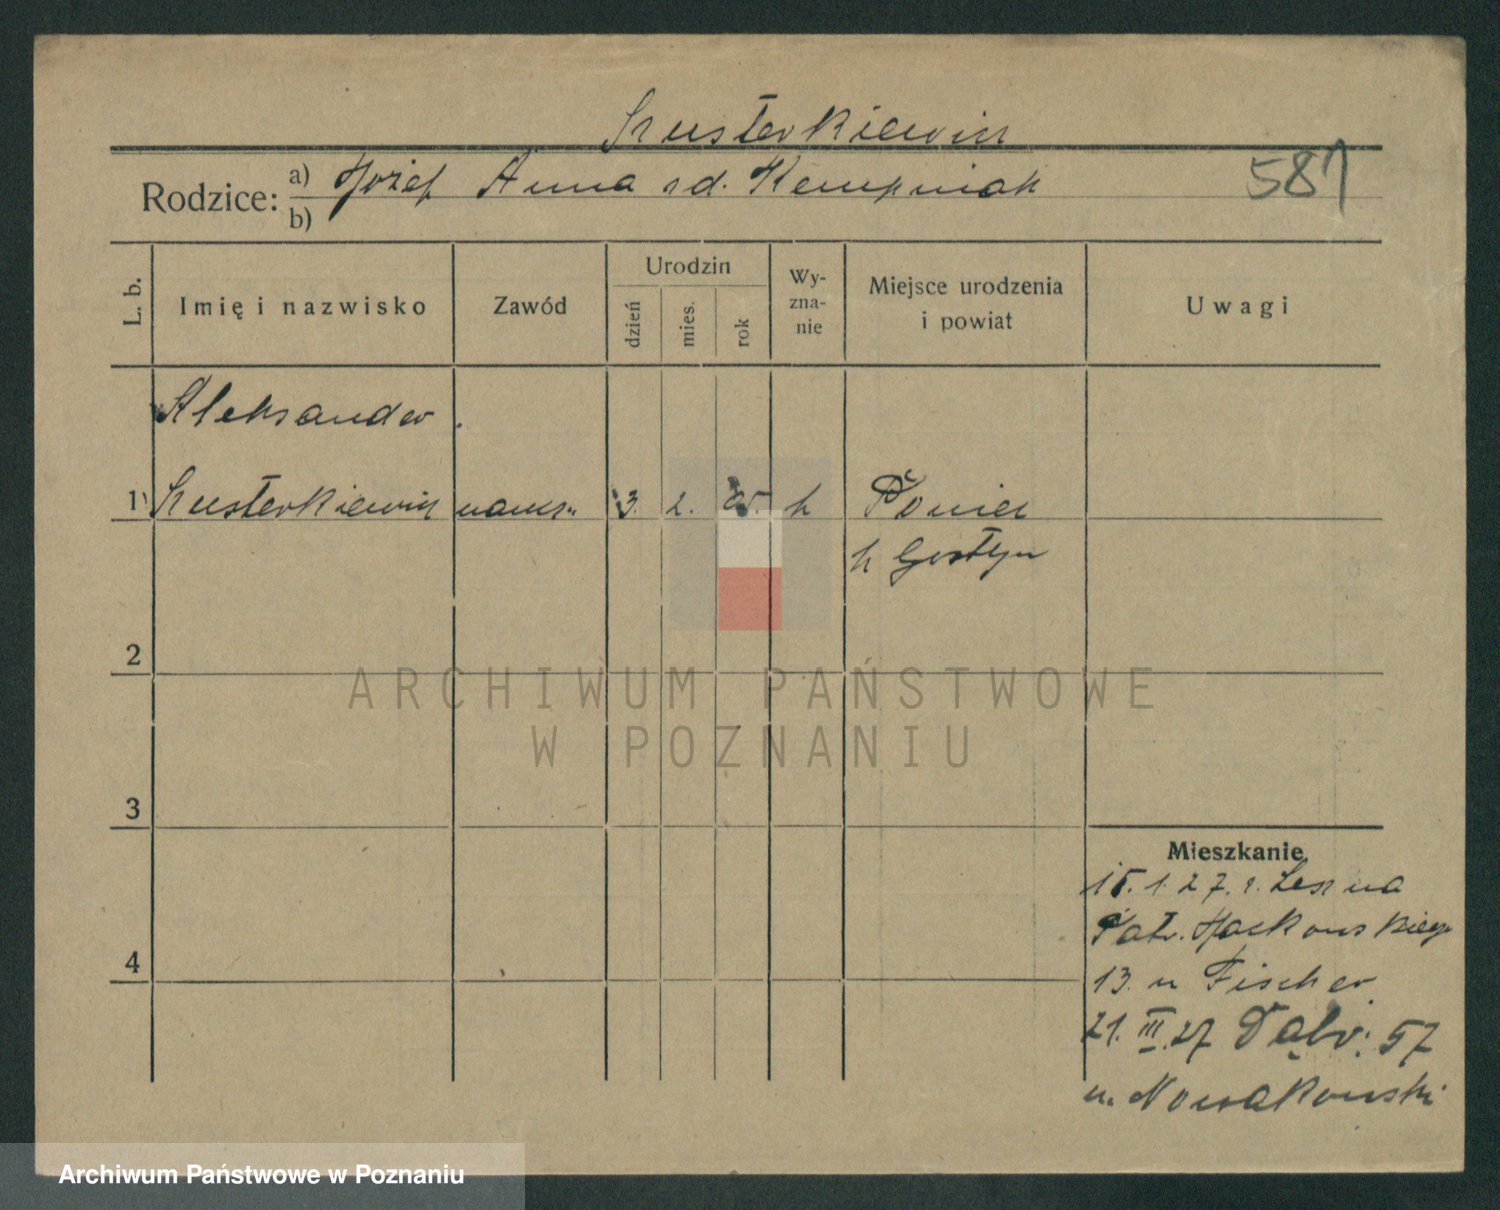 Szusterkiewicz
Rodzice: a) Józef Anna zd. Kempniak
b)
587
L. b.
Imię i nazwisko
Zawód
Urodzin
dzień
mies.
rok
Wy-
zna-
nie
Miejsce urodzenia
i powiat
Uwagi
Aleksander
1 Szusterkiewicz 3. 2. 05. k Poniec
k Gostyn
2
3
4
Mieszkanie
15.1.27. z Leszna
Patr. Jackowskiego
13. u Fischer
21. III. 27 Dąbr. 57
u. Nowakowski
ARCHIWUM PAŃSTWOWE
W POZNANIU
Archiwum Państwowe w Poznaniu